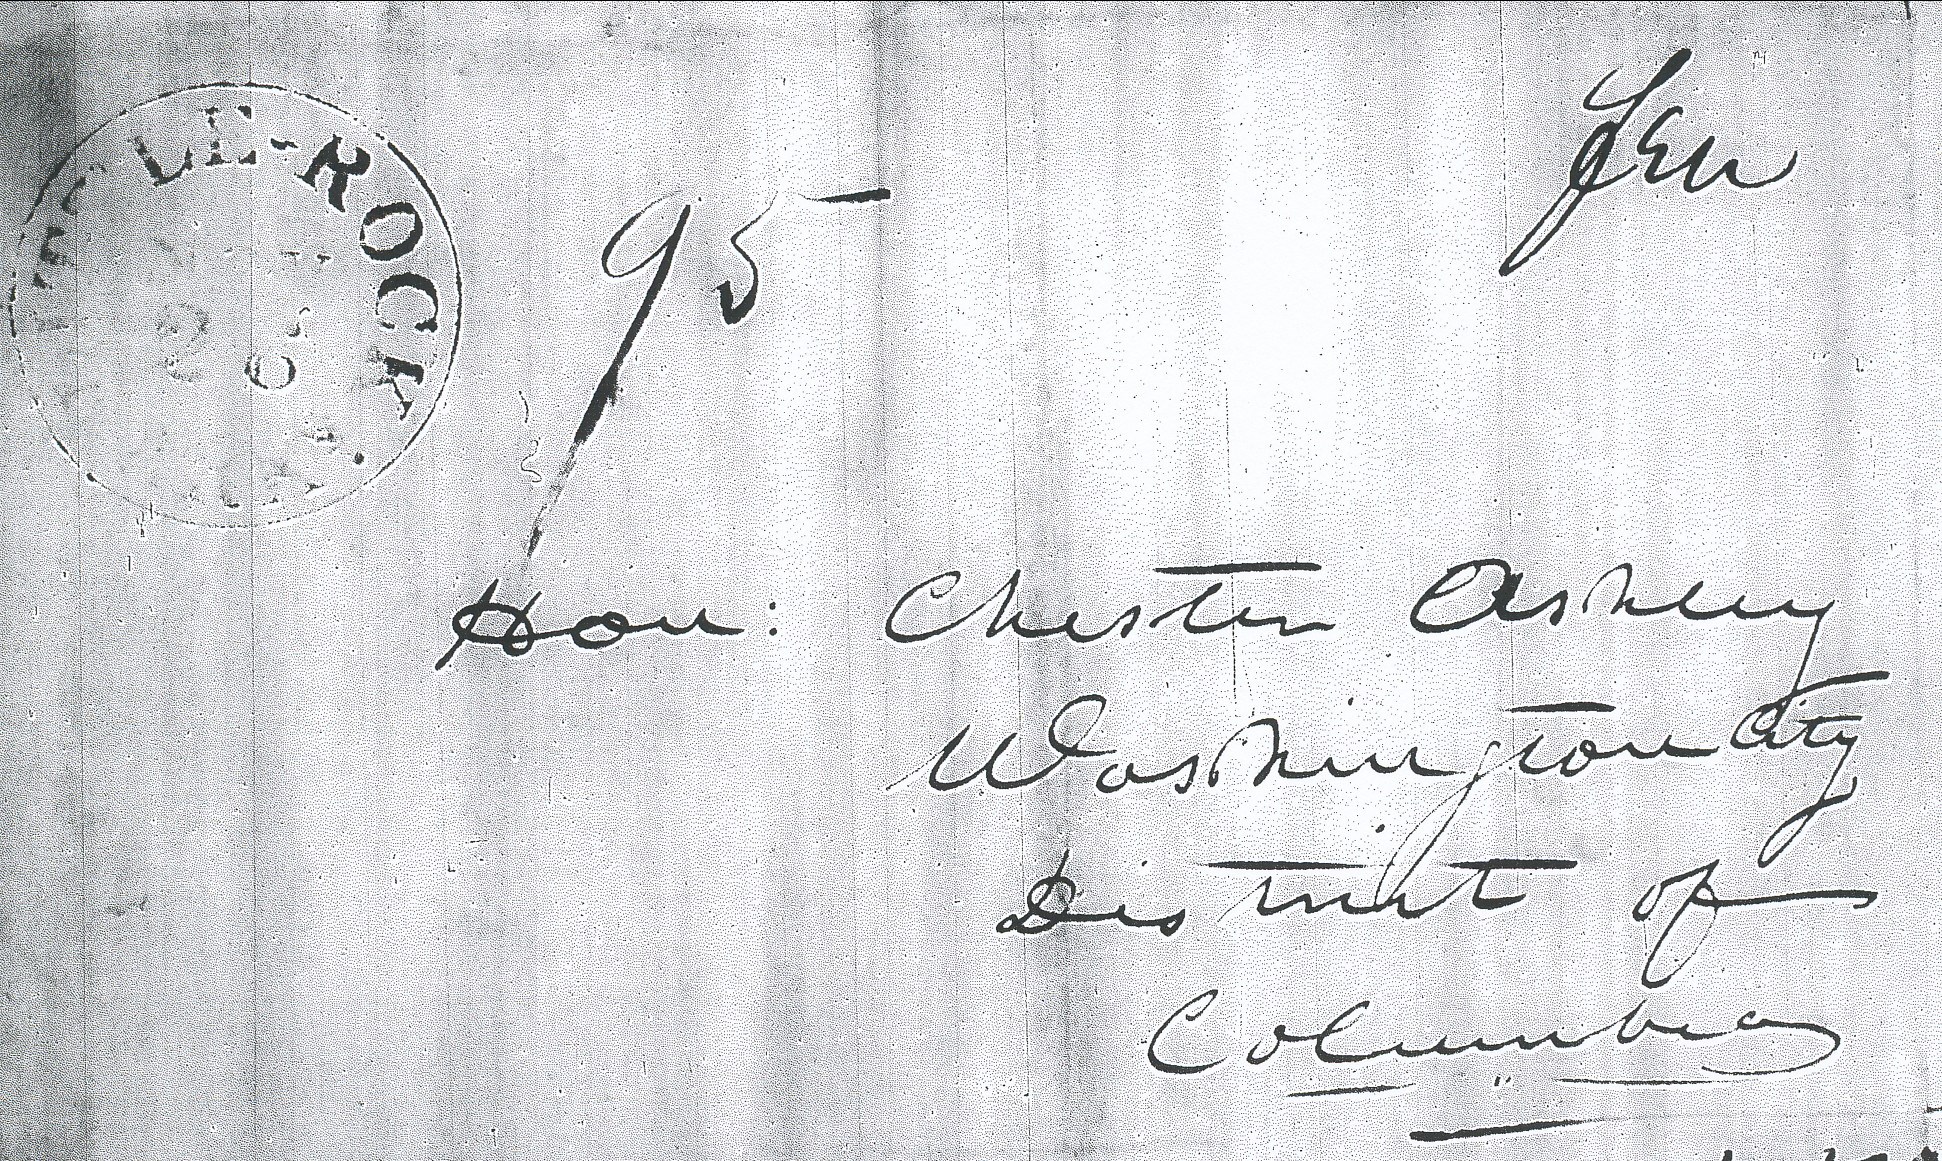 LE-ROCK
95
Hon: Chester Ashley
Washington City
District of
Columbia